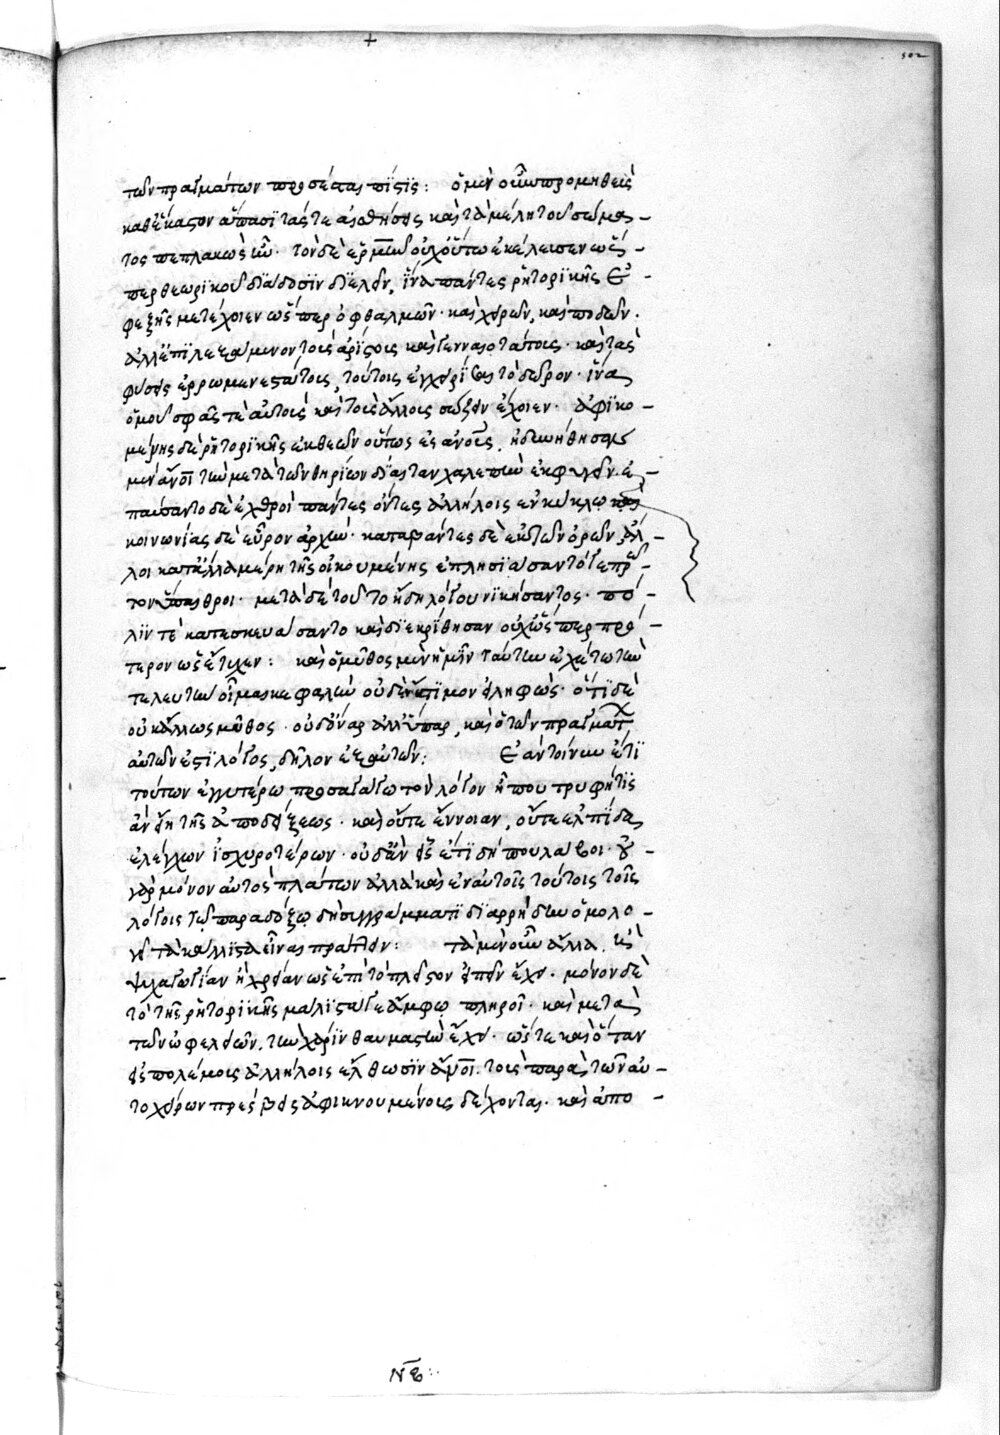 502
τῶν πραγμάτων πρόσεται πίστις: ὁ μὲν οὖν προμηθεὺς
καθέκαστον ἅπασι τάς τε αἰσθήσεις καὶ τὰ μέλη τοῦ σώμα –
τος πεπλακὼς ἦν· τὸν δὲ ἑρμῆν οὐχ οὕτω ἐκέλευσεν ὥσ –
περ θεωρικοῦ διάδοσιν διελεῖν, ἵνα πάντες ῥητορικῆς ἐ –
φεξῆς μετέχοιεν ὥσπερ ὀφθαλμῶν· καὶ χειρῶν, καὶ ποδῶν·
ἀλλ' ἐπιλεξάμενον τοὺς ἀρίστους καὶ γενναιοτάτους· καὶ τὰς
φύσεις ἐρρωμενεστάτους, τούτοις ἐγχειρίσαι τὸ δῶρον· ἵνα
ὁμοῦ σφᾶς τε αὐτοὺς καὶ τοὺς ἄλλους σώζειν ἔχοιεν· ἀφικο –
μένης δὲ ῥητορικῆς ἐκ θεῶν οὕτως ἐς ἀνους, ἠδυνήθησαν
μὲν ἄνοι τὴν μετὰ τῶν θηρίων δίαιταν χαλεπὴν ἐκφυγεῖν· ἐ –
παύσαντο δὲ ἐχθροὶ πάντες ὄντες ἀλλήλοις ἐν κύκλω καὶ
κοινωνίας δὲ εὗρον ἀρχήν· καταβάντες δὲ ἐκ τῶν ὀρῶν ἄλ –
λοι κατ' ἄλλα μέρη τῆς οἰκουμένης ἐπλησίασαν τόγε πρῶ –
τον ὕπαιθροι· μετὰ δὲ τοῦτο ἤδη λόγου νικήσαντος· πό –
λιν τὲ κατεσκευάσαντο καὶ διεκρίθησαν οὐχ ὥσπερ πρό –
τερον ὡς ἔτυχεν: καὶ ὁ μῦθος μὲν ἡμῖν ταύτην ἐχέτω τὴν
τελευτὴν οἷμαι κεφαλὴν οὐδὲν ἄτιμον εἰληφώς· ὅτι δὲ
οὐκ ἄλλως μῦθος· οὐδ' ὄναρ ἀλλ' ὕπαρ, καὶ ὁ τῶν πραγμάτ
αὐτῶν ἐστὶ λόγος, δῆλον ἐξ αὐτῶν: Ἐὰν τοίνυν ἔτι
τούτων ἐγγυτέρω προσαγάγω τὸν λόγον ἦ που τρυφή τις
ἂν εἴη τῆς ἀποδείξεως· καὶ οὔτε ἔννοιαν, οὔτε ἐλπίδα
ἐλέγχων ἰσχυροτέρων· οὐδ' ἂν εἷς ἔτι δήπου λάβοι· οὐ –
γὰρ μόνον αὐτὸς πλάττων ἀλλὰ καὶ ἐν αὐτοῖς τούτοις τοῖς
λόγοις τῷ παραδόξῳ δὴ συγγράμματι διαρρήδην ὁμολο –
γεῖ τὰ κάλλιστα εἶναι πράττειν: τὰ μὲν οὖν ἄλλα εἰς
ψυχαγωγίαν ἢ χρείαν ὡς ἐπὶ τὸ πλεῖστον εἰπεῖν ἔχει· μόνον δὲ
τὸ τῆς ῥητορικῆς μάλιστά γε ἄμφω πληροῖ· καὶ μετὰ
τῶν ὠφελειῶν, τὴν χάριν θαυμαστὴν ἔχει· ὥστε καὶ ὅταν
εἰς πολέμους ἀλλήλοις ἔλθωσιν ἄνοι· τοὺς παρὰ τῶν αὐ –
τοχείρων πρέσβεις ἀφικνουμένους δέχονται· καὶ ἀπο –